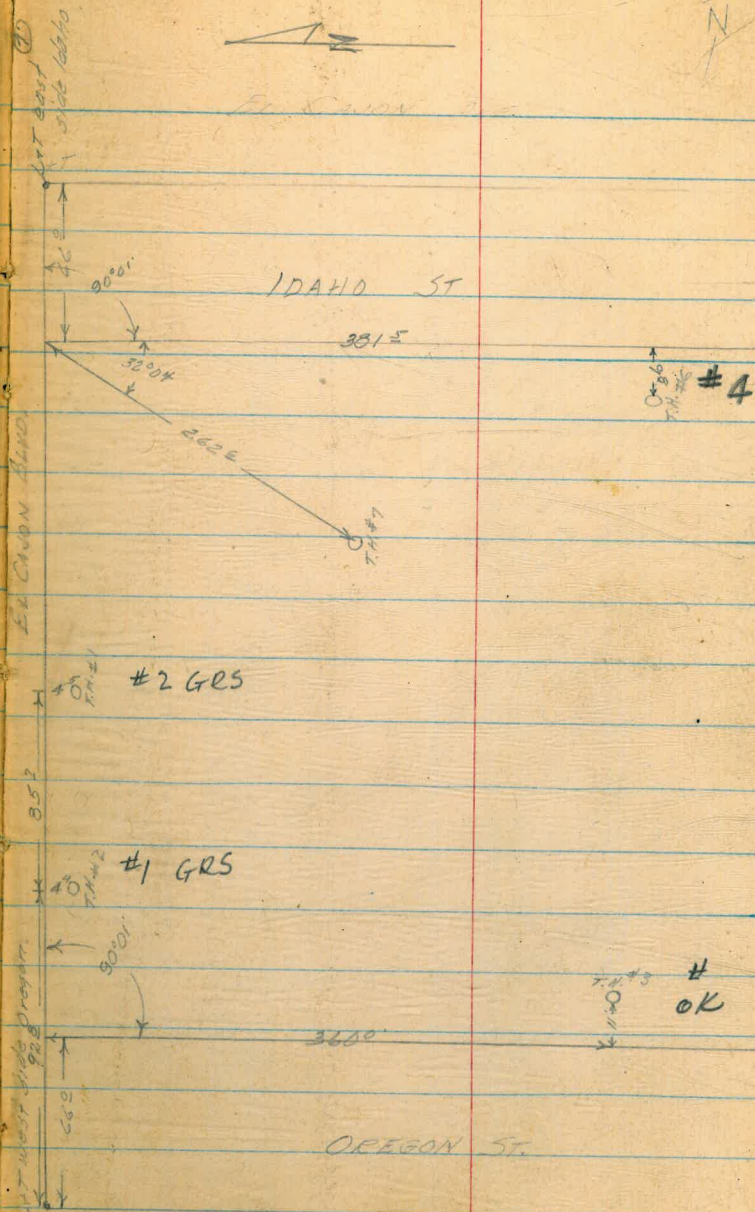 N
N
L&T east
side Idaho
EL CAJON AVE.
46⁰
90°01'
IDAHO ST
381⁵
32°04'
262⁶
9⁸
T.H. #6
# 4
T.H #7
EL CAJON BLVD.
4⁹
T.H. #1
#2 GRS
85²
4⁸
T.H. #2
#1 GRS
90°01'
T.H. #3
11⁴
#
OK
360⁰
L&T west side Oregon.
92⁸
66⁰
OREGON ST.